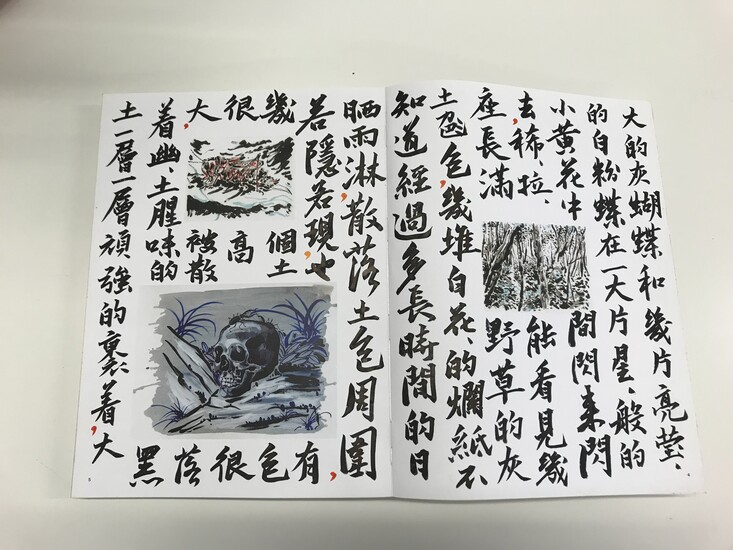 大的灰蝴蝶和幾片亮瑩、
的白粉蝶在一大片星、般的
小黃花中間閃來閃
去,稀、拉、能看見幾
座長滿野草的灰
土包,幾堆白花、的爛紙不
知道經過多長時間的日
4
晒雨淋,散落土包周圍,
若隱若現,也有
幾個土包
很高很
大,被散蔭
着幽、土腥味的黑
土一層一層頑強的裹着,大
5